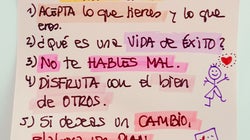 1) ACEPTA lo que tienes y lo que
eres.
2) ¿Qué es una VIDA DE ÉXITO?
3) NO te HABLES MAL.
4) DISFRUTA con el bien
de OTROS.
5) Si deseas un CAMBIO,
PLAN